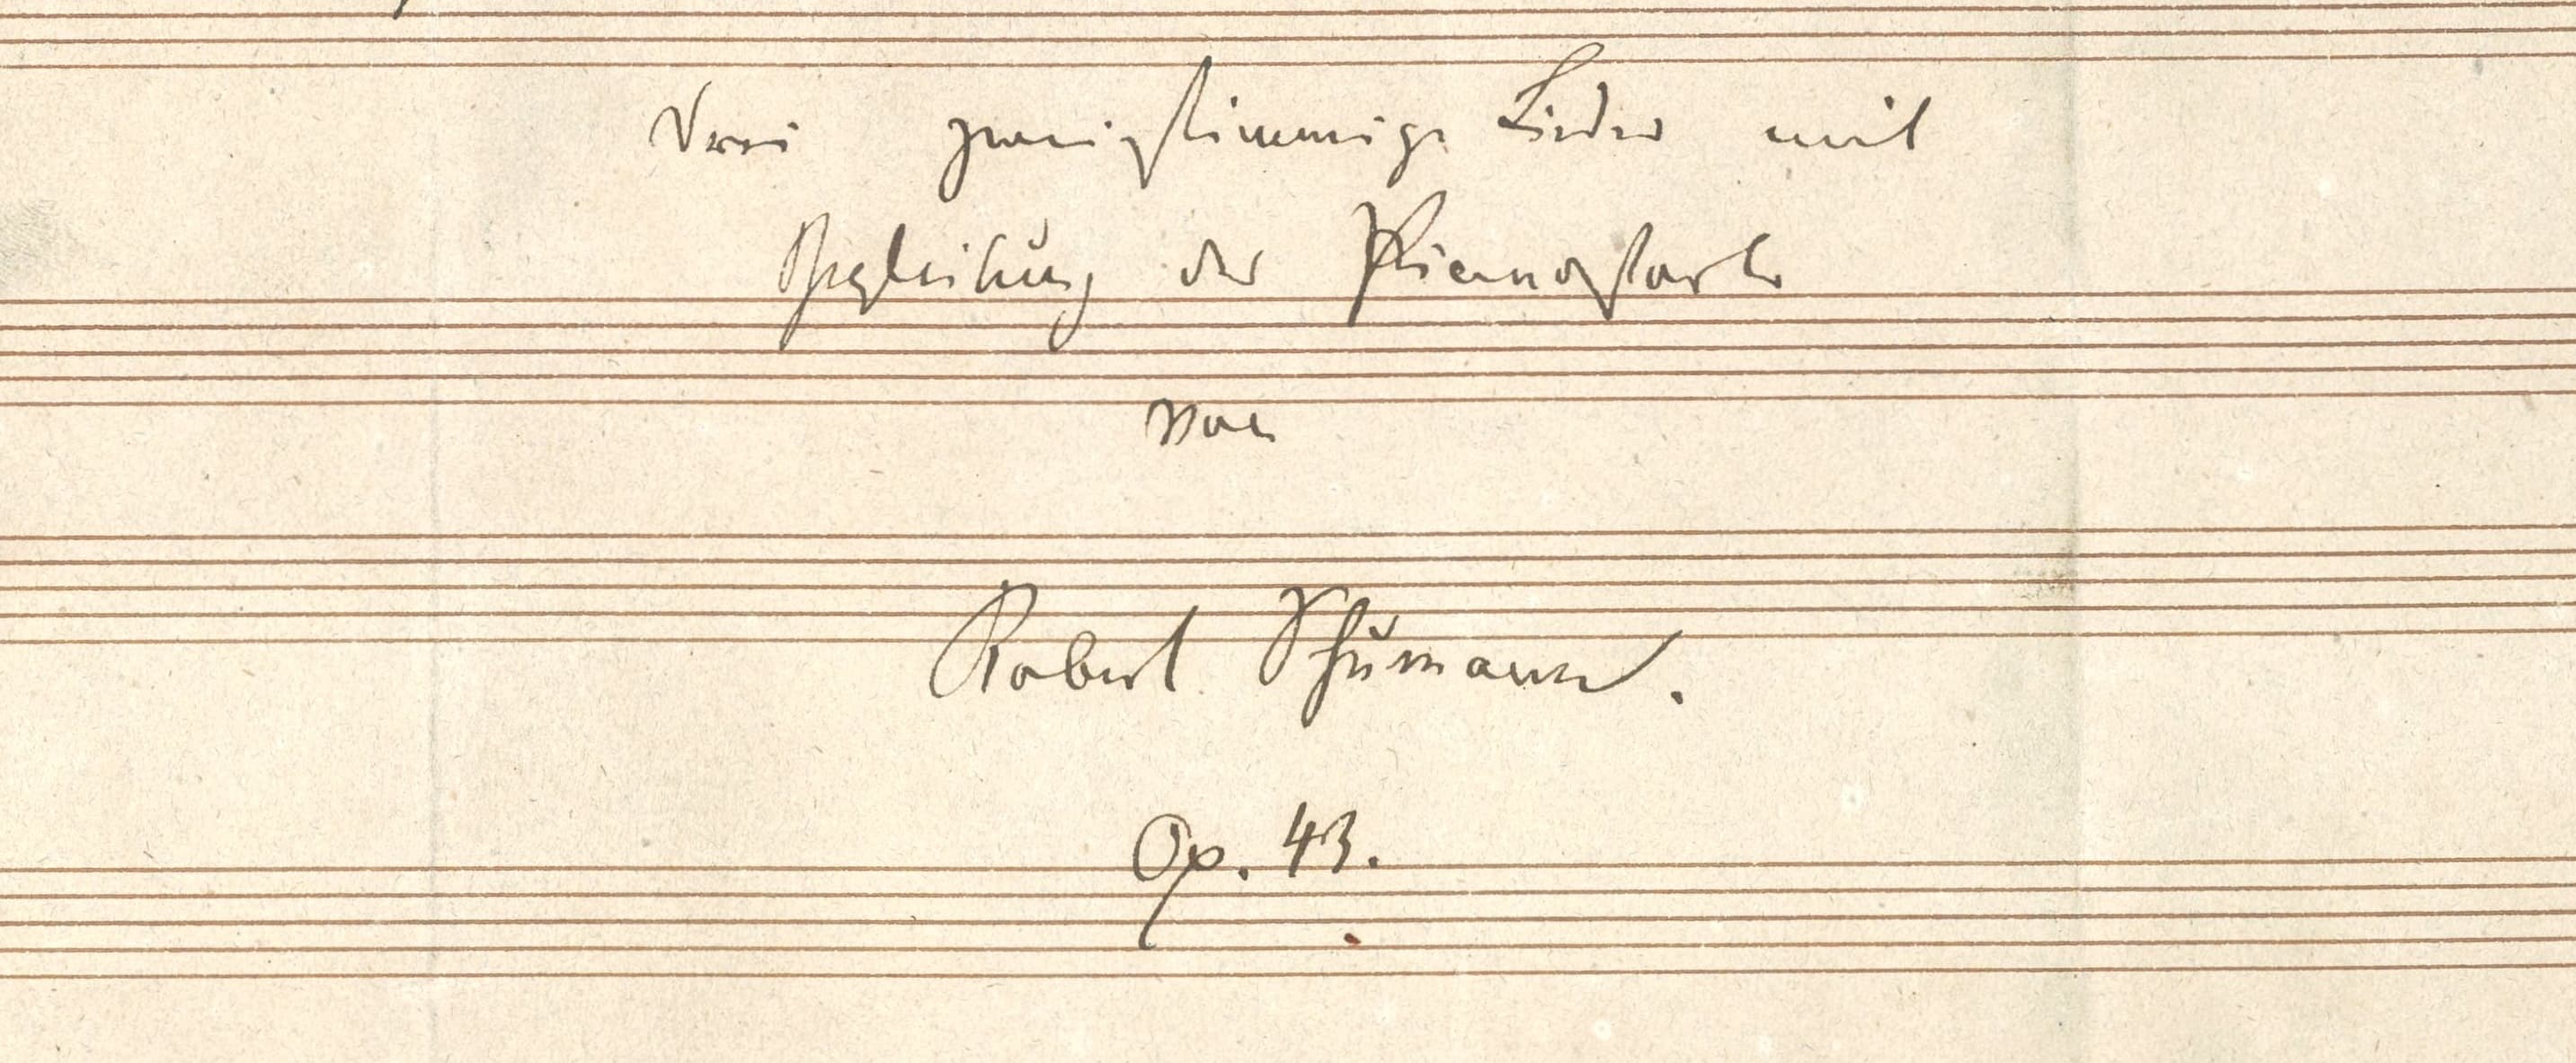 Drei zweistimmige Lieder mit
Begleitung des Pianoforte
von
Robert Schumann.
Op. 43.